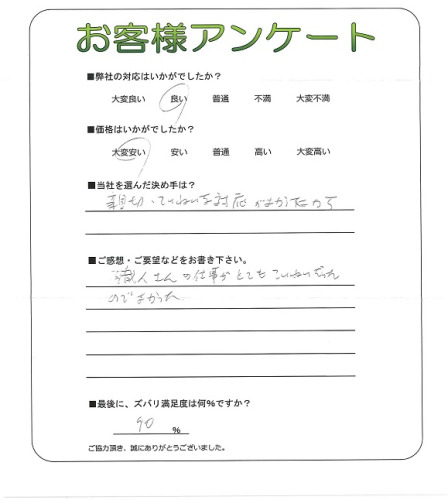 お客様アンケート
■弊社の対応はいかがでしたか？
大変良い 良い 普通 不満 大変不満
■価格はいかがでしたか？
大変安い 安い 普通 高い 大変高い
■当社を選んだ決め手は？
親切、ていねいな対応がよかったから
■ご感想・ご要望などをお書き下さい。
職人さんの仕事がとてもていねいだった
のでよかった
■最後に、ズバリ満足度は何%ですか？
90 %
ご協力頂き、誠にありがとうございました。